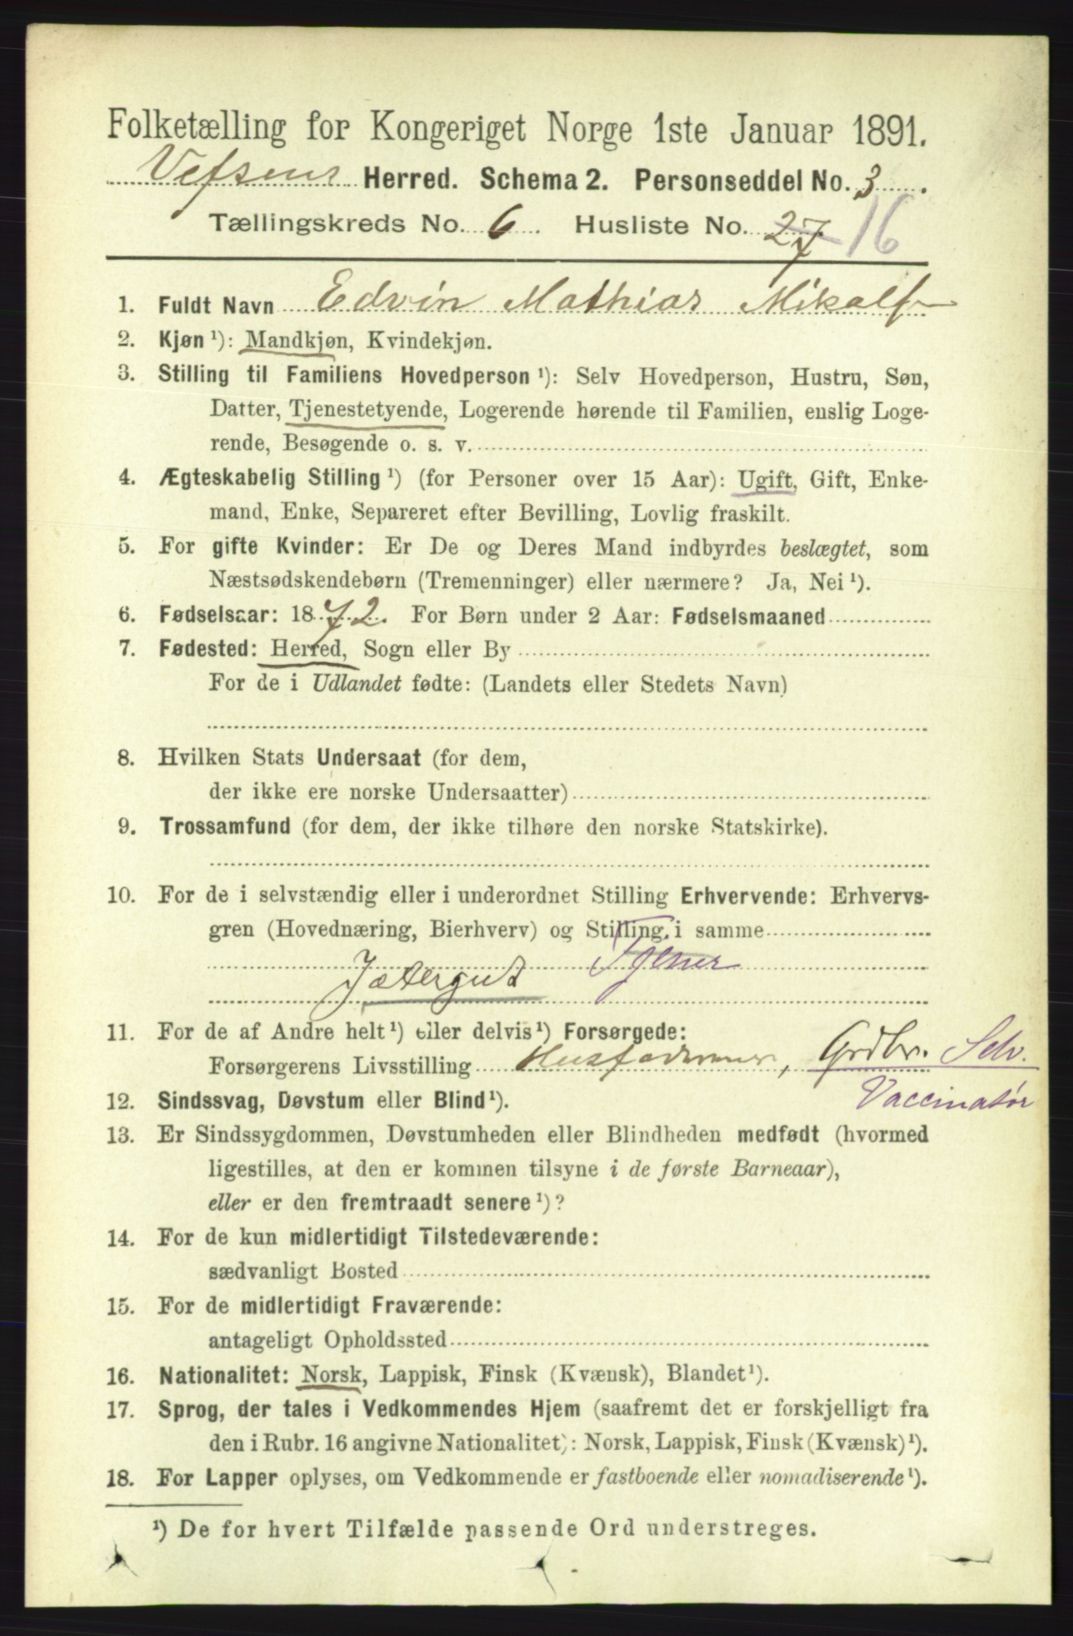 Folketælling for Kongeriget Norge 1ste Januar 1891.
Vefsens Herred. Schema 2. Personseddel No. 3.
Tællingskreds No. 6. Husliste No. 27 16
1. Fuldt Navn Edvin Mathias Mikals
2. Kjøn ¹): Mandkjøn, Kvindekjøn.
3. Stilling til Familiens Hovedperson ¹): Selv Hovedperson, Hustru, Søn,
Datter, Tjenestetyende, Logerende hørende til Familien, enslig Loge-
rende, Besøgende o. s. v.
4. Ægteskabelig Stilling ¹) (for Personer over 15 Aar): Ugift, Gift, Enke-
mand, Enke, Separeret efter Bevilling, Lovlig fraskilt.
5. For gifte Kvinder: Er De og Deres Mand indbyrdes beslægtet, som
Næstsødskendebørn (Tremenninger) eller nærmere? Ja, Nei ¹).
6. Fødselsaar: 1872. For Børn under 2 Aar: Fødselsmaaned
7. Fødested: Herred, Sogn eller By
For de i Udlandet fødte: (Landets eller Stedets Navn)
8. Hvilken Stats Undersaat (for dem,
der ikke ere norske Undersaatter)
9. Trossamfund (for dem, der ikke tilhøre den norske Statskirke).
10. For de i selvstændig eller i underordnet Stilling Erhvervende: Erhvervs-
gren (Hovednæring, Bierhverv) og Stilling i samme
Jætergut Tjener
11. For de af Andre helt ¹) eller delvis ¹) Forsørgede:
Forsørgerens Livsstilling Husfaderens, Grdbr. Selv.
Vaccinatør
12. Sindssvag, Døvstum eller Blind ¹).
13. Er Sindssygdommen, Døvstumheden eller Blindheden medfødt (hvormed
ligestilles, at den er kommen tilsyne i de første Barneaar),
eller er den fremtraadt senere ¹)?
14. For de kun midlertidigt Tilstedeværende:
sædvanligt Bosted
15. For de midlertidigt Fraværende:
antageligt Opholdssted
16. Nationalitet: Norsk, Lappisk, Finsk (Kvænsk), Blandet ¹).
17. Sprog, der tales i Vedkommendes Hjem (saafremt det er forskjelligt fra
den i Rubr. 16 angivne Nationalitet): Norsk, Lappisk, Finsk (Kvænsk) ¹).
18. For Lapper oplyses, om Vedkommende er fastboende eller nomadiserende ¹).
¹) De for hvert Tilfælde passende Ord understreges.